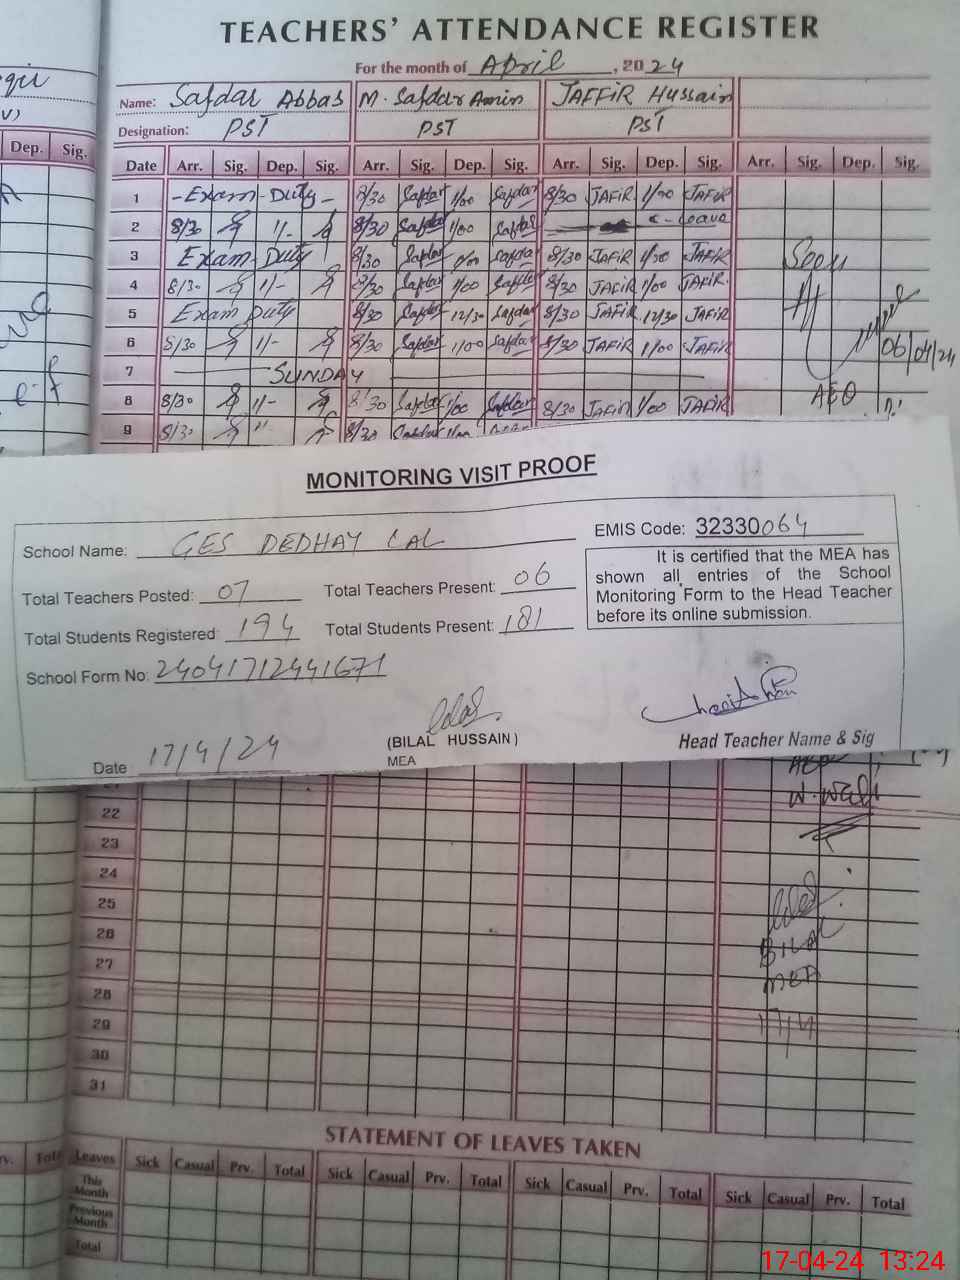 TEACHERS' ATTENDANCE REGISTER
For the month of April, 2024
Name: Safdar Abbas M. Safdar Amin JAFFIR Hussain
Designation: PST PST PST
Dep. Sig.
Date Arr. Sig. Dep. Sig. Arr. Sig. Dep. Sig. Arr. Sig. Dep. Sig. Arr. Sig. Dep. Sig.
1 -Exam-Duty- 8/30 Safdar 1/00 Safdar 8/30 JAFIR 1/00 JAFIR
2 8/30 1/- 8/30 Safdar 1/00 Safdar C-Leave
3 Exam Duty 8/30 Safdar 1/00 Safdar 8/30 JAFIR 1/00 JAFIR Seen
4 8/30 1/- 8/30 Safdar 1/00 Safdar 8/30 JAFIR 1/00 JAFIR
5 Exam Duty 8/30 Safdar 12/30 Safdar 8/30 JAFIR 12/30 JAFIR
6 8/30 1/- 8/30 Safdar 1/00 Safdar 8/30 JAFIR 1/00 JAFIR 06/04/24
7 SUNDAY
8 8/30 1/- 8/30 Safdar 1/00 Safdar 8/30 JAFIR 1/00 JAFIR AEO
9 8/30 8/30 Safdar
MONITORING VISIT PROOF
School Name: GES DEDHAY LAL EMIS Code: 32330064
Total Teachers Posted: 07 Total Teachers Present: 06
Total Students Registered: 194 Total Students Present: 181
School Form No: 24041712441671
It is certified that the MEA has
shown all entries of the School
Monitoring Form to the Head Teacher
before its online submission.
Date 17/4/24
(BILAL HUSSAIN)
MEA
Head Teacher Name & Sig
21
22
23
24
25
26 BILAL
27 MEA
28
29 17/4
30
31
STATEMENT OF LEAVES TAKEN
Leaves Sick Casual Prv. Total Sick Casual Prv. Total Sick Casual Prv. Total Sick Casual Prv. Total
This Month
Previous Month
Total
17-04-24 13:24